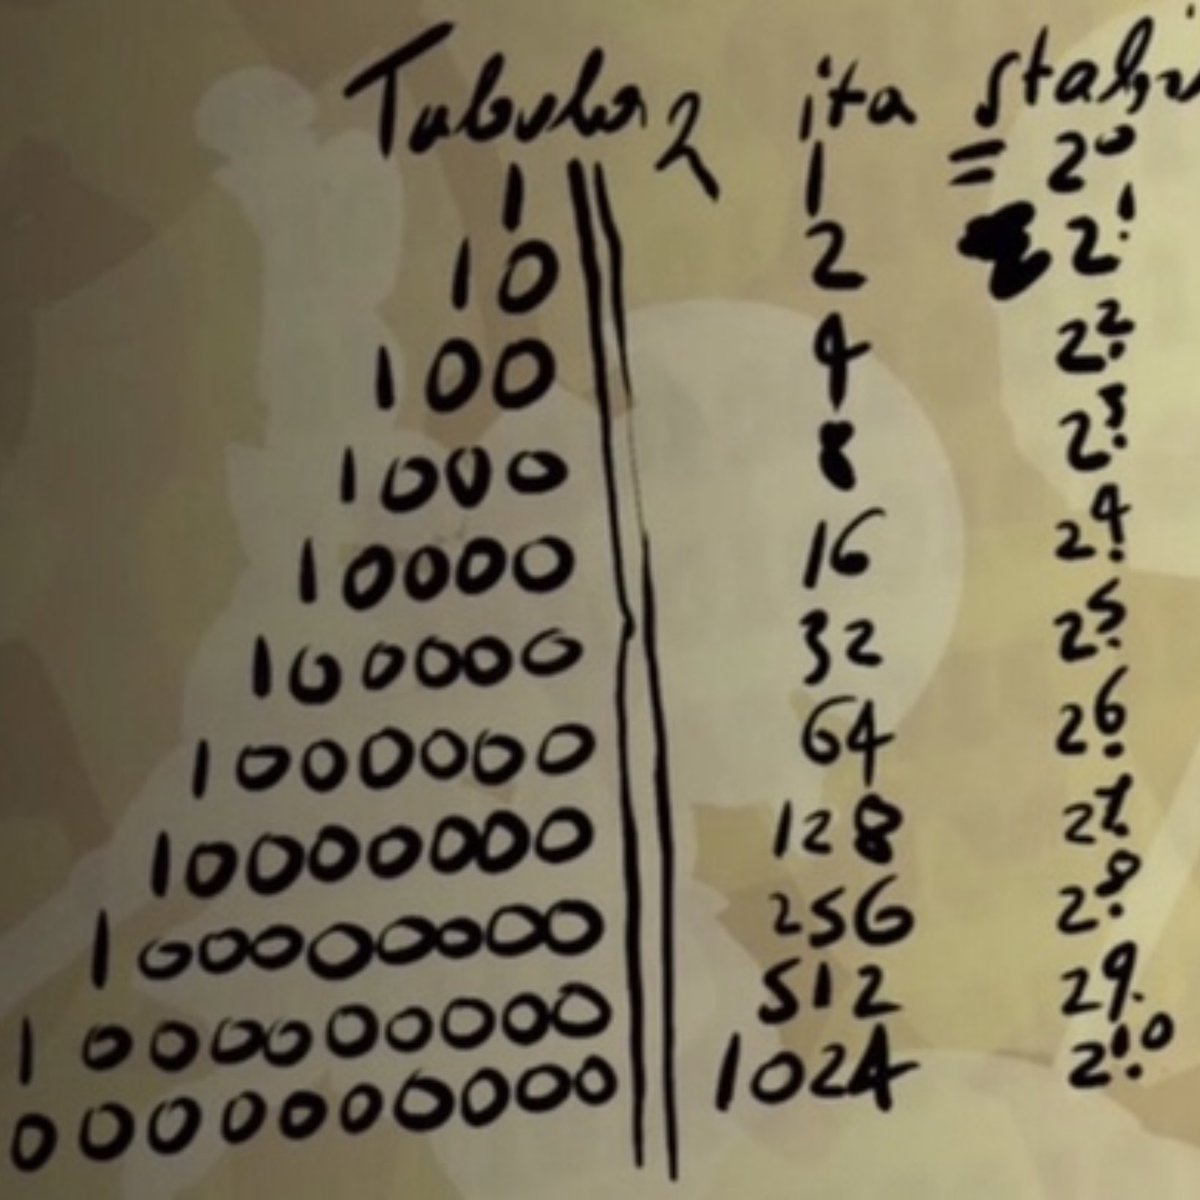 Tabula ita
1 1 = 2⁰
10 2 2¹.
100 4 2².
1000 8 2³.
10000 16 2⁴.
100000 32 2⁵.
1000000 64 2⁶.
10000000 128 2⁷.
100000000 256 2⁸.
1000000000 512 2⁹.
0000000000 1024 2¹⁰.